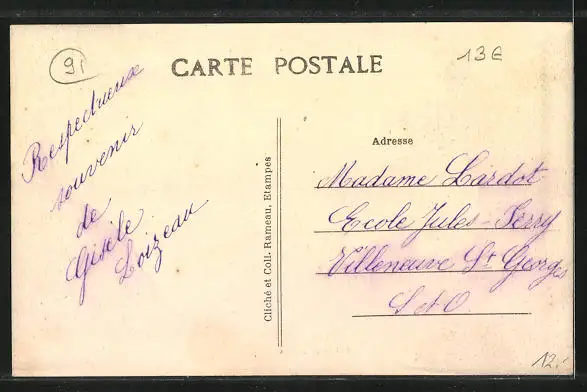 91
CARTE POSTALE
13€
Respectueux
souvenir
de
Gisèle
Loizeau
Cliché et Coll. Rameau, Etampes
Adresse
Madame Lardot
Ecole Jules-Ferry
Villeneuve St Georges
S et O.
12.